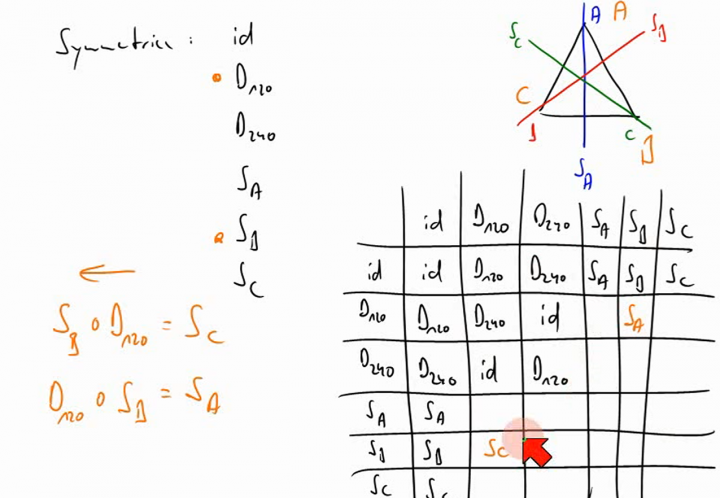 Symmetrien: id
D120
D240
SA
SB
SC
S_B ∘ D120 = SC
D120 ∘ SB = SA
A A
SC SB
C
B C B
SA
id D120 D240 SA SB SC
id id D120 D240 SA SB SC
D120 D120 D240 id SA
D240 D240 id D120
SA SA
SB SB SC
SC SC